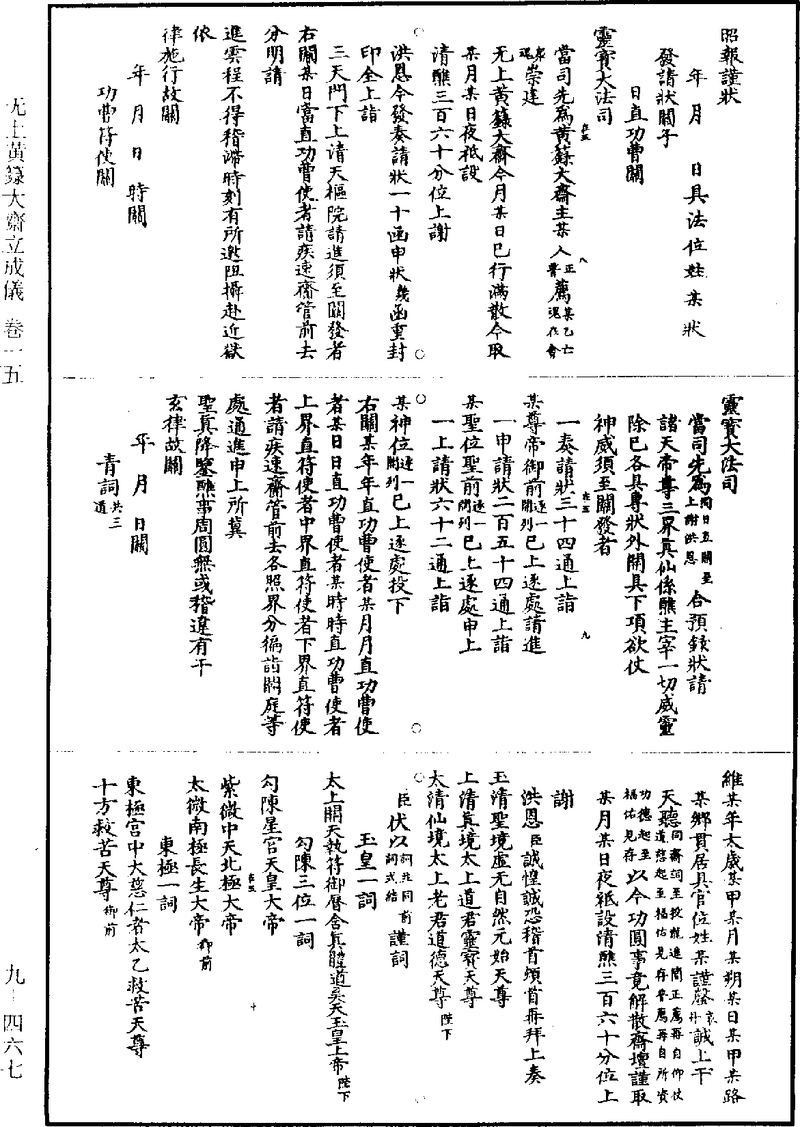 昭報謹狀
年　月　日具法位姓某狀
發請狀關子
日直功曹關
靈寶大法司
當司先為黃籙大齋主某人正薦某乙亡
崇建
无上黃籙大齋今月某日已行滿散今取
某月某日夜祗設
清醮三百六十分位上謝
洪恩今發奏請狀一十函申狀幾函重封
印全上詣
三天門下上清天樞院請進須至關發者
右關某日當直功曹使者請疾速齎管前去
分明請
進雲程不得稽滯時刻有所邀阻攝赴近嶽
依
律施行故關
年　月　日　時關
功曹符使關
靈寶大法司
當司先為同日五關至上謝洪恩合預錄狀請
諸天帝尊三界真仙係醮主宰一切威靈
除已各具專狀外開具下項欲仗
神威須至關發者
一奏請狀三十四通上詣
某尊帝御前逐一開列已上逐處請進
一申請狀二百五十四通上詣
某聖位聖前逐一開列已上逐處申上
一上請狀六十二通上詣
某神位逐一開列已上逐處投下
右關某年年直功曹使者某月月直功曹使
者某日日直功曹使者某時時直功曹使者
上界直符使者中界直符使者下界直符使
者請疾速齎管前去各照界分徧詣闕庭等
處通進申上所冀
聖真降鑒醮事周圓無或稽違有干
玄律故關
年　月　日關
青詞共三道
維某年太歲某甲某月某朔某日某甲某路
某鄉貫居具官位姓某謹罄丹誠上干
天聽同齋詞至投龍進簡正薦再自仰仗
功德起至福佑見存以今功圓事竟解散齋壇謹取
某月某日夜祗設清醮三百六十分位上
謝
洪恩臣誠惶誠恐稽首頓首再拜上奏
玉清聖境虛无自然元始天尊
上清真境太上道君靈寶天尊
太清仙境太上老君道德天尊陛下
臣伏以詞並同前詞式結謹詞
玉皇一詞
太上開天執符御曆含真體道昊天玉皇上帝陛下
勾陳三位一詞
勾陳星宮天皇大帝
紫微中天北極大帝
太微南極長生大帝御前
東極一詞
東極宮中大慈仁者太乙救苦天尊
十方救苦天尊御前
无上黃籙大齋立成儀　卷一五
九－四六七